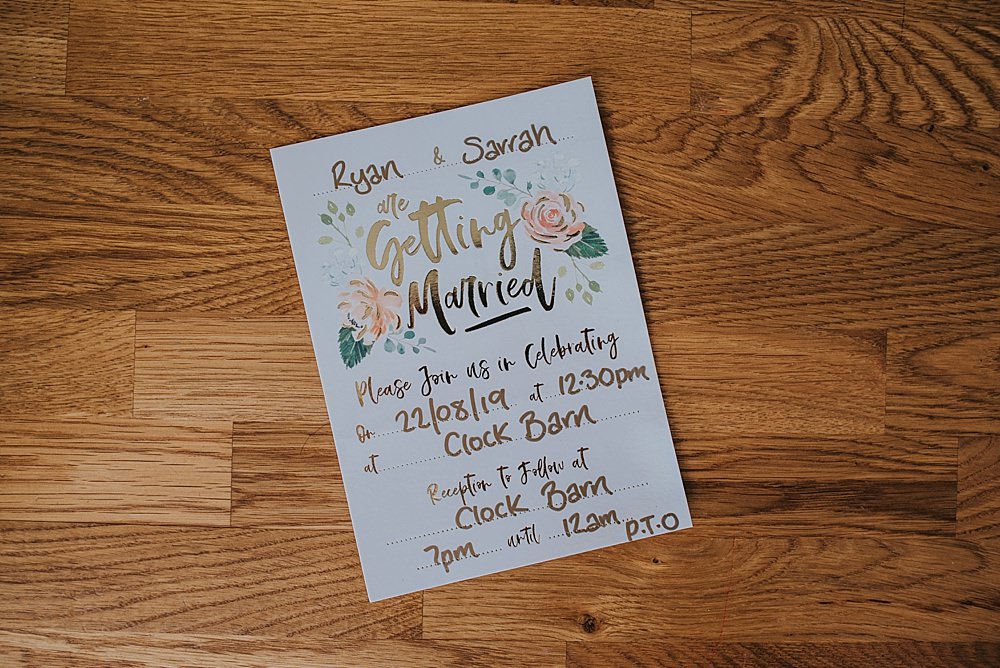 Ryan & Sarrah
are
Getting
Married
Please Join us in Celebrating
On 22/08/19 at 12:30pm
at Clock Barn
Reception to Follow at
Clock Barn
7pm until 12am
P.T.O